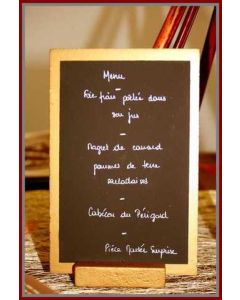 Menu
-
Foie frais poêlée dans
son jus
-
Magret de canard
pommes de terre
sarladaises
-
Cabécou du Périgord
-
Pièce Montée Surprise